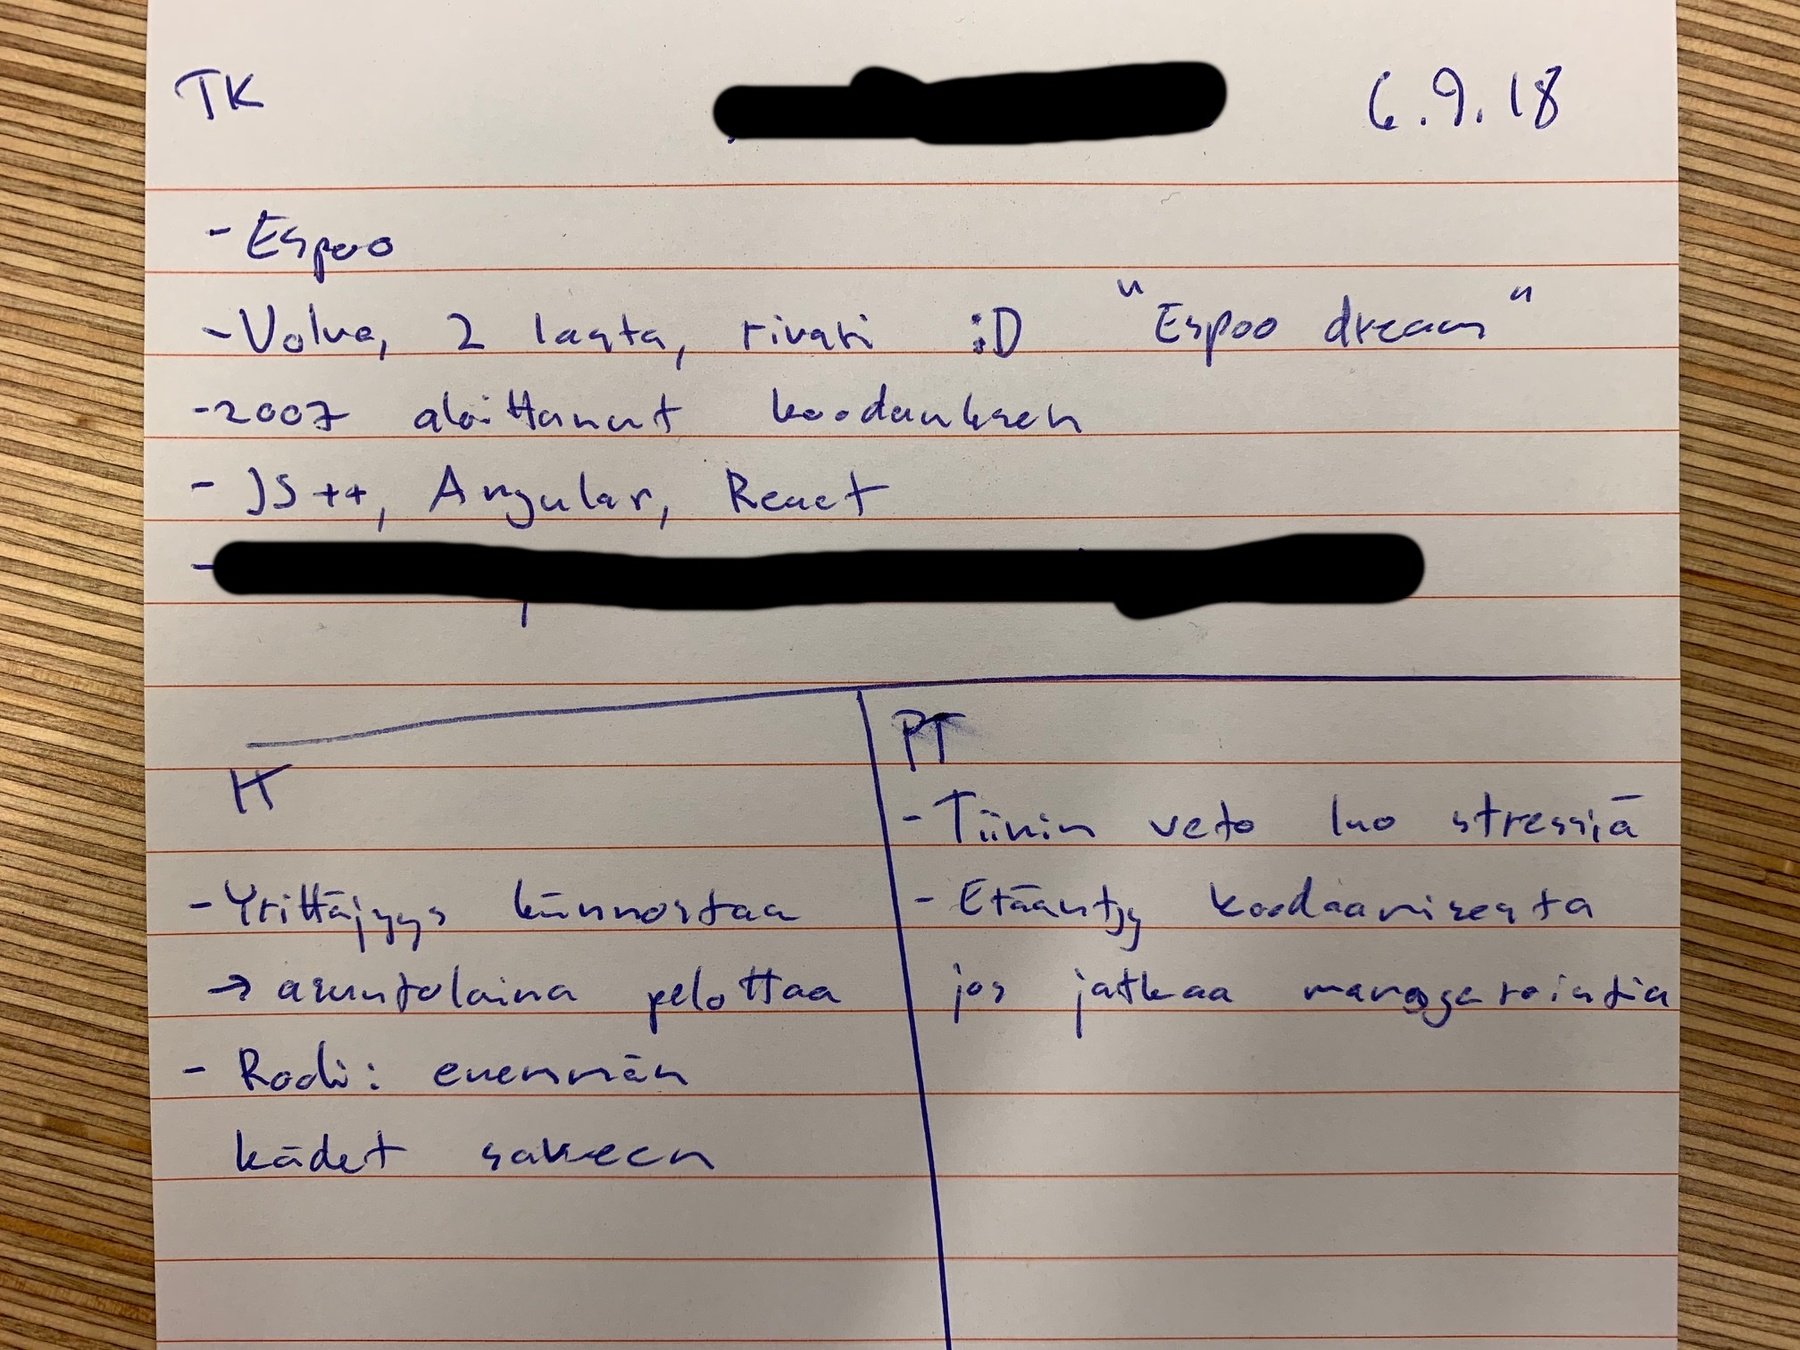 TK 6.9.18
- Espoo
- Volvo, 2 lasta, rivari :D "Espoo dream"
- 2007 aloittanut koodauksen
- JS++, Angular, React
-
HT
- Yrittäjyys kiinnostaa
→ asuntolaina pelottaa
- Rooli: enemmän
kädet saveen
PT
- Tiimin veto luo stressiä
- Etääntyy koodaamisesta
jos jatkaa managerointia